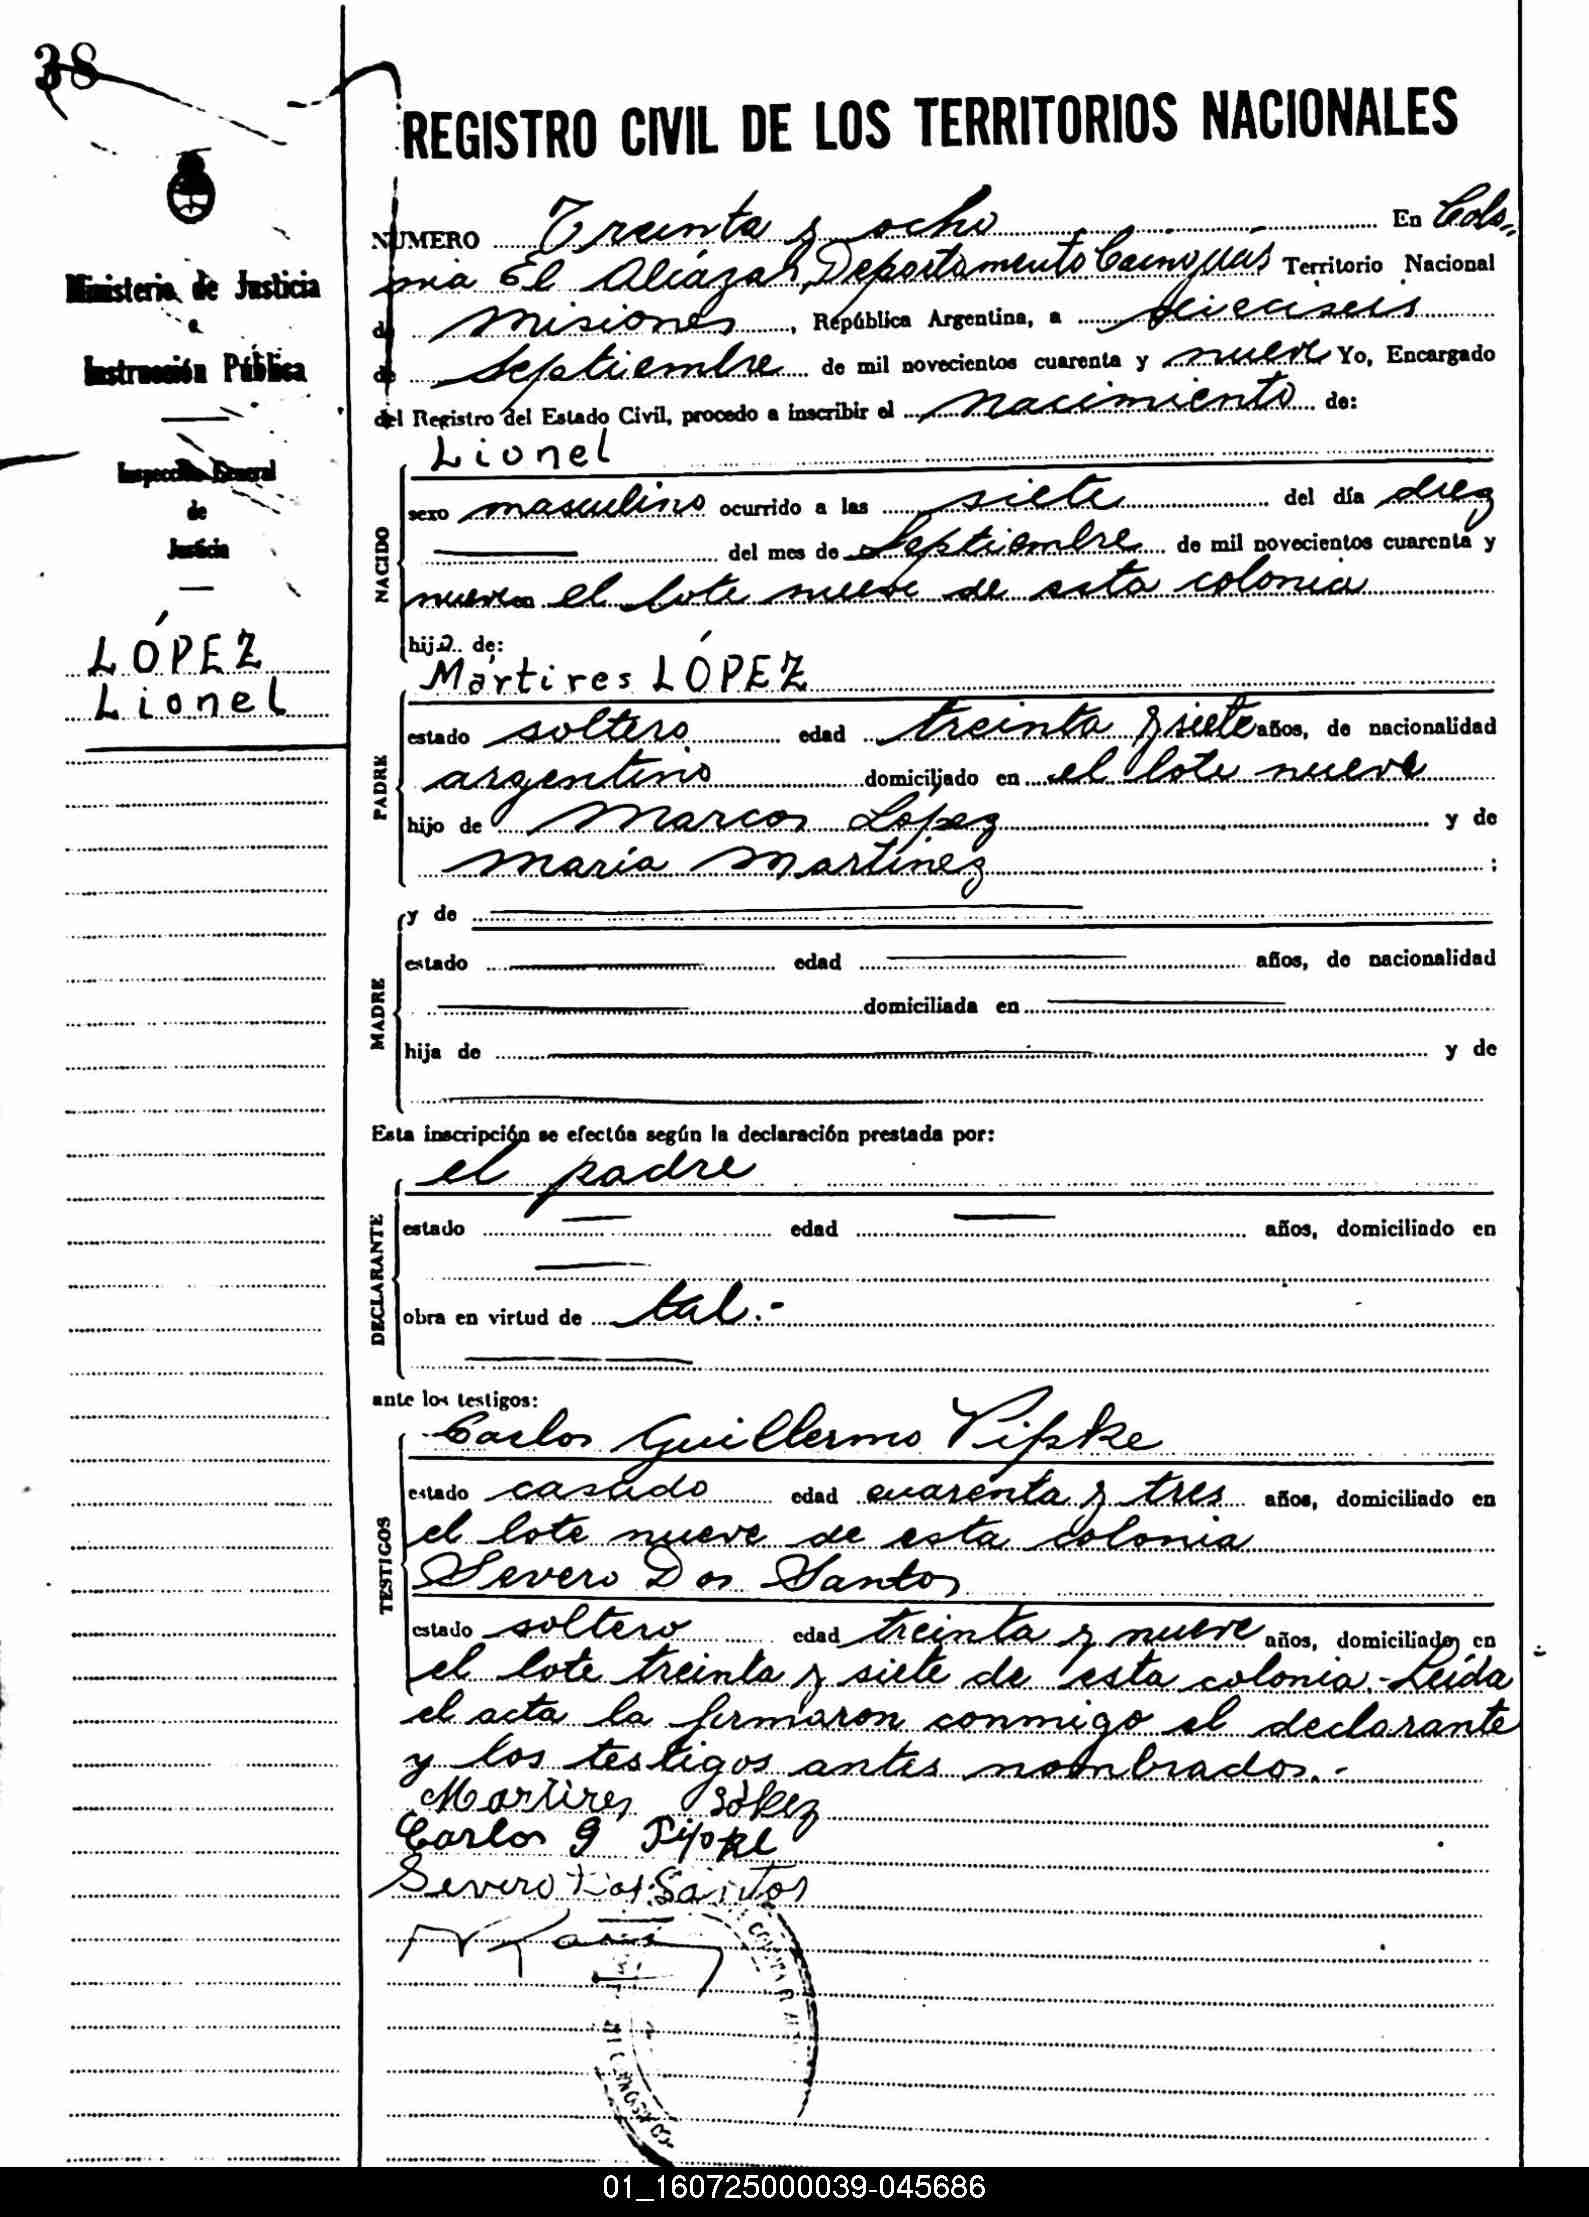 38
REGISTRO CIVIL DE LOS TERRITORIOS NACIONALES
NUMERO Treinta y ocho En Colo-
nia El Alcázar, Departamento Cainguás Territorio Nacional
de Misiones, República Argentina, a dieciseis
de Septiembre de mil novecientos cuarenta y nueve Yo, Encargado
del Registro del Estado Civil, procedo a inscribir el nacimiento de:
Ministerio de Justicia
e
Instrucción Pública
Inspección General
de
Justicia
LÓPEZ
Lionel
NACIDO
Lionel
sexo masculino ocurrido a las siete del día diez
del mes de Septiembre de mil novecientos cuarenta y
nueve en el lote nueve de esta colonia
hijo de:
PADRE
Mártires LÓPEZ
estado soltero edad treinta y siete años, de nacionalidad
argentino domiciliado en el lote nueve
hijo de Marcos López y de
María Martínez ;
MADRE
y de
estado edad años, de nacionalidad
domiciliada en
hija de y de
Esta inscripción se efectúa según la declaración prestada por:
DECLARANTE
el padre
estado edad años, domiciliado en
obra en virtud de tal.-
ante los testigos:
TESTIGOS
Carlos Guillermo Pipke
estado casado edad cuarenta y tres años, domiciliado en
el lote nueve de esta colonia
Severo Dos Santos
estado soltero edad treinta y nueve años, domiciliado en
el lote treinta y siete de esta colonia.- Leída
el acta la firmaron conmigo el declarante
y los testigos antes nombrados.-
Martires López
Carlos G Pipke
Severo Dos Santos
01_160725000039-045686